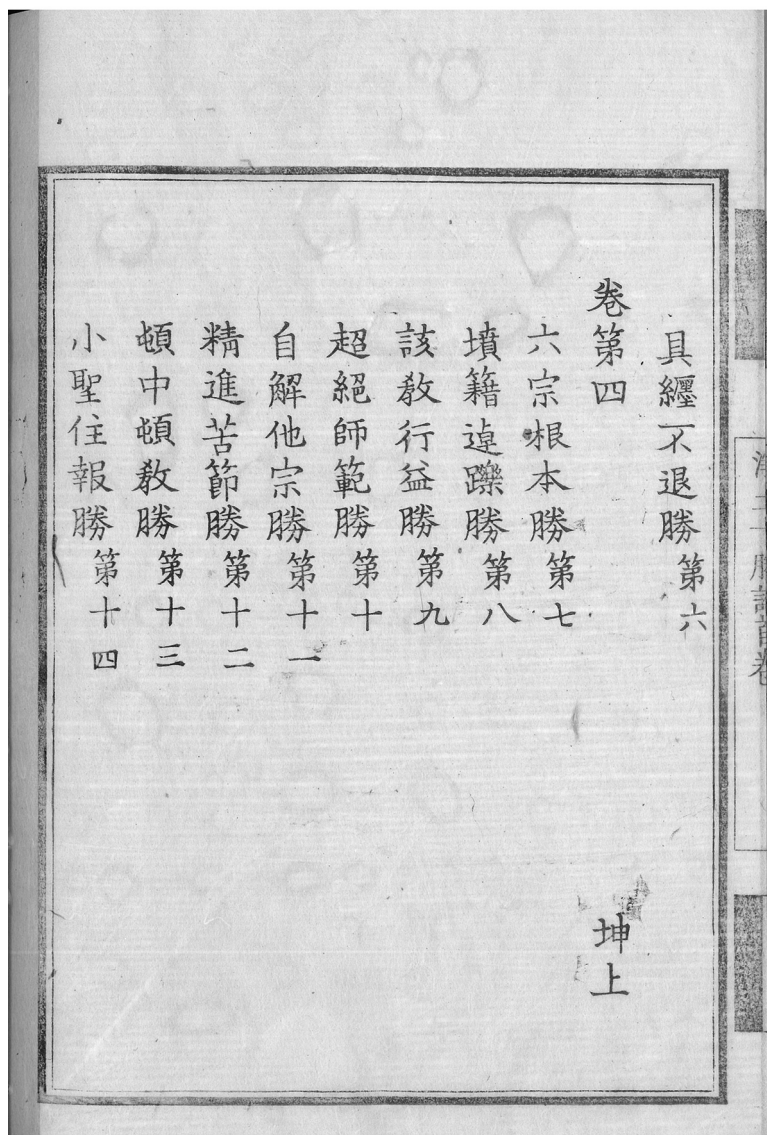 具纒不退勝第六
卷第四 坤上
六宗根本勝第七
墳籍逴躒勝第八
該教行益勝第九
超絕師範勝第十
自解他宗勝第十一
精進苦節勝第十二
頓中頓教勝第十三
小聖住報勝第十四